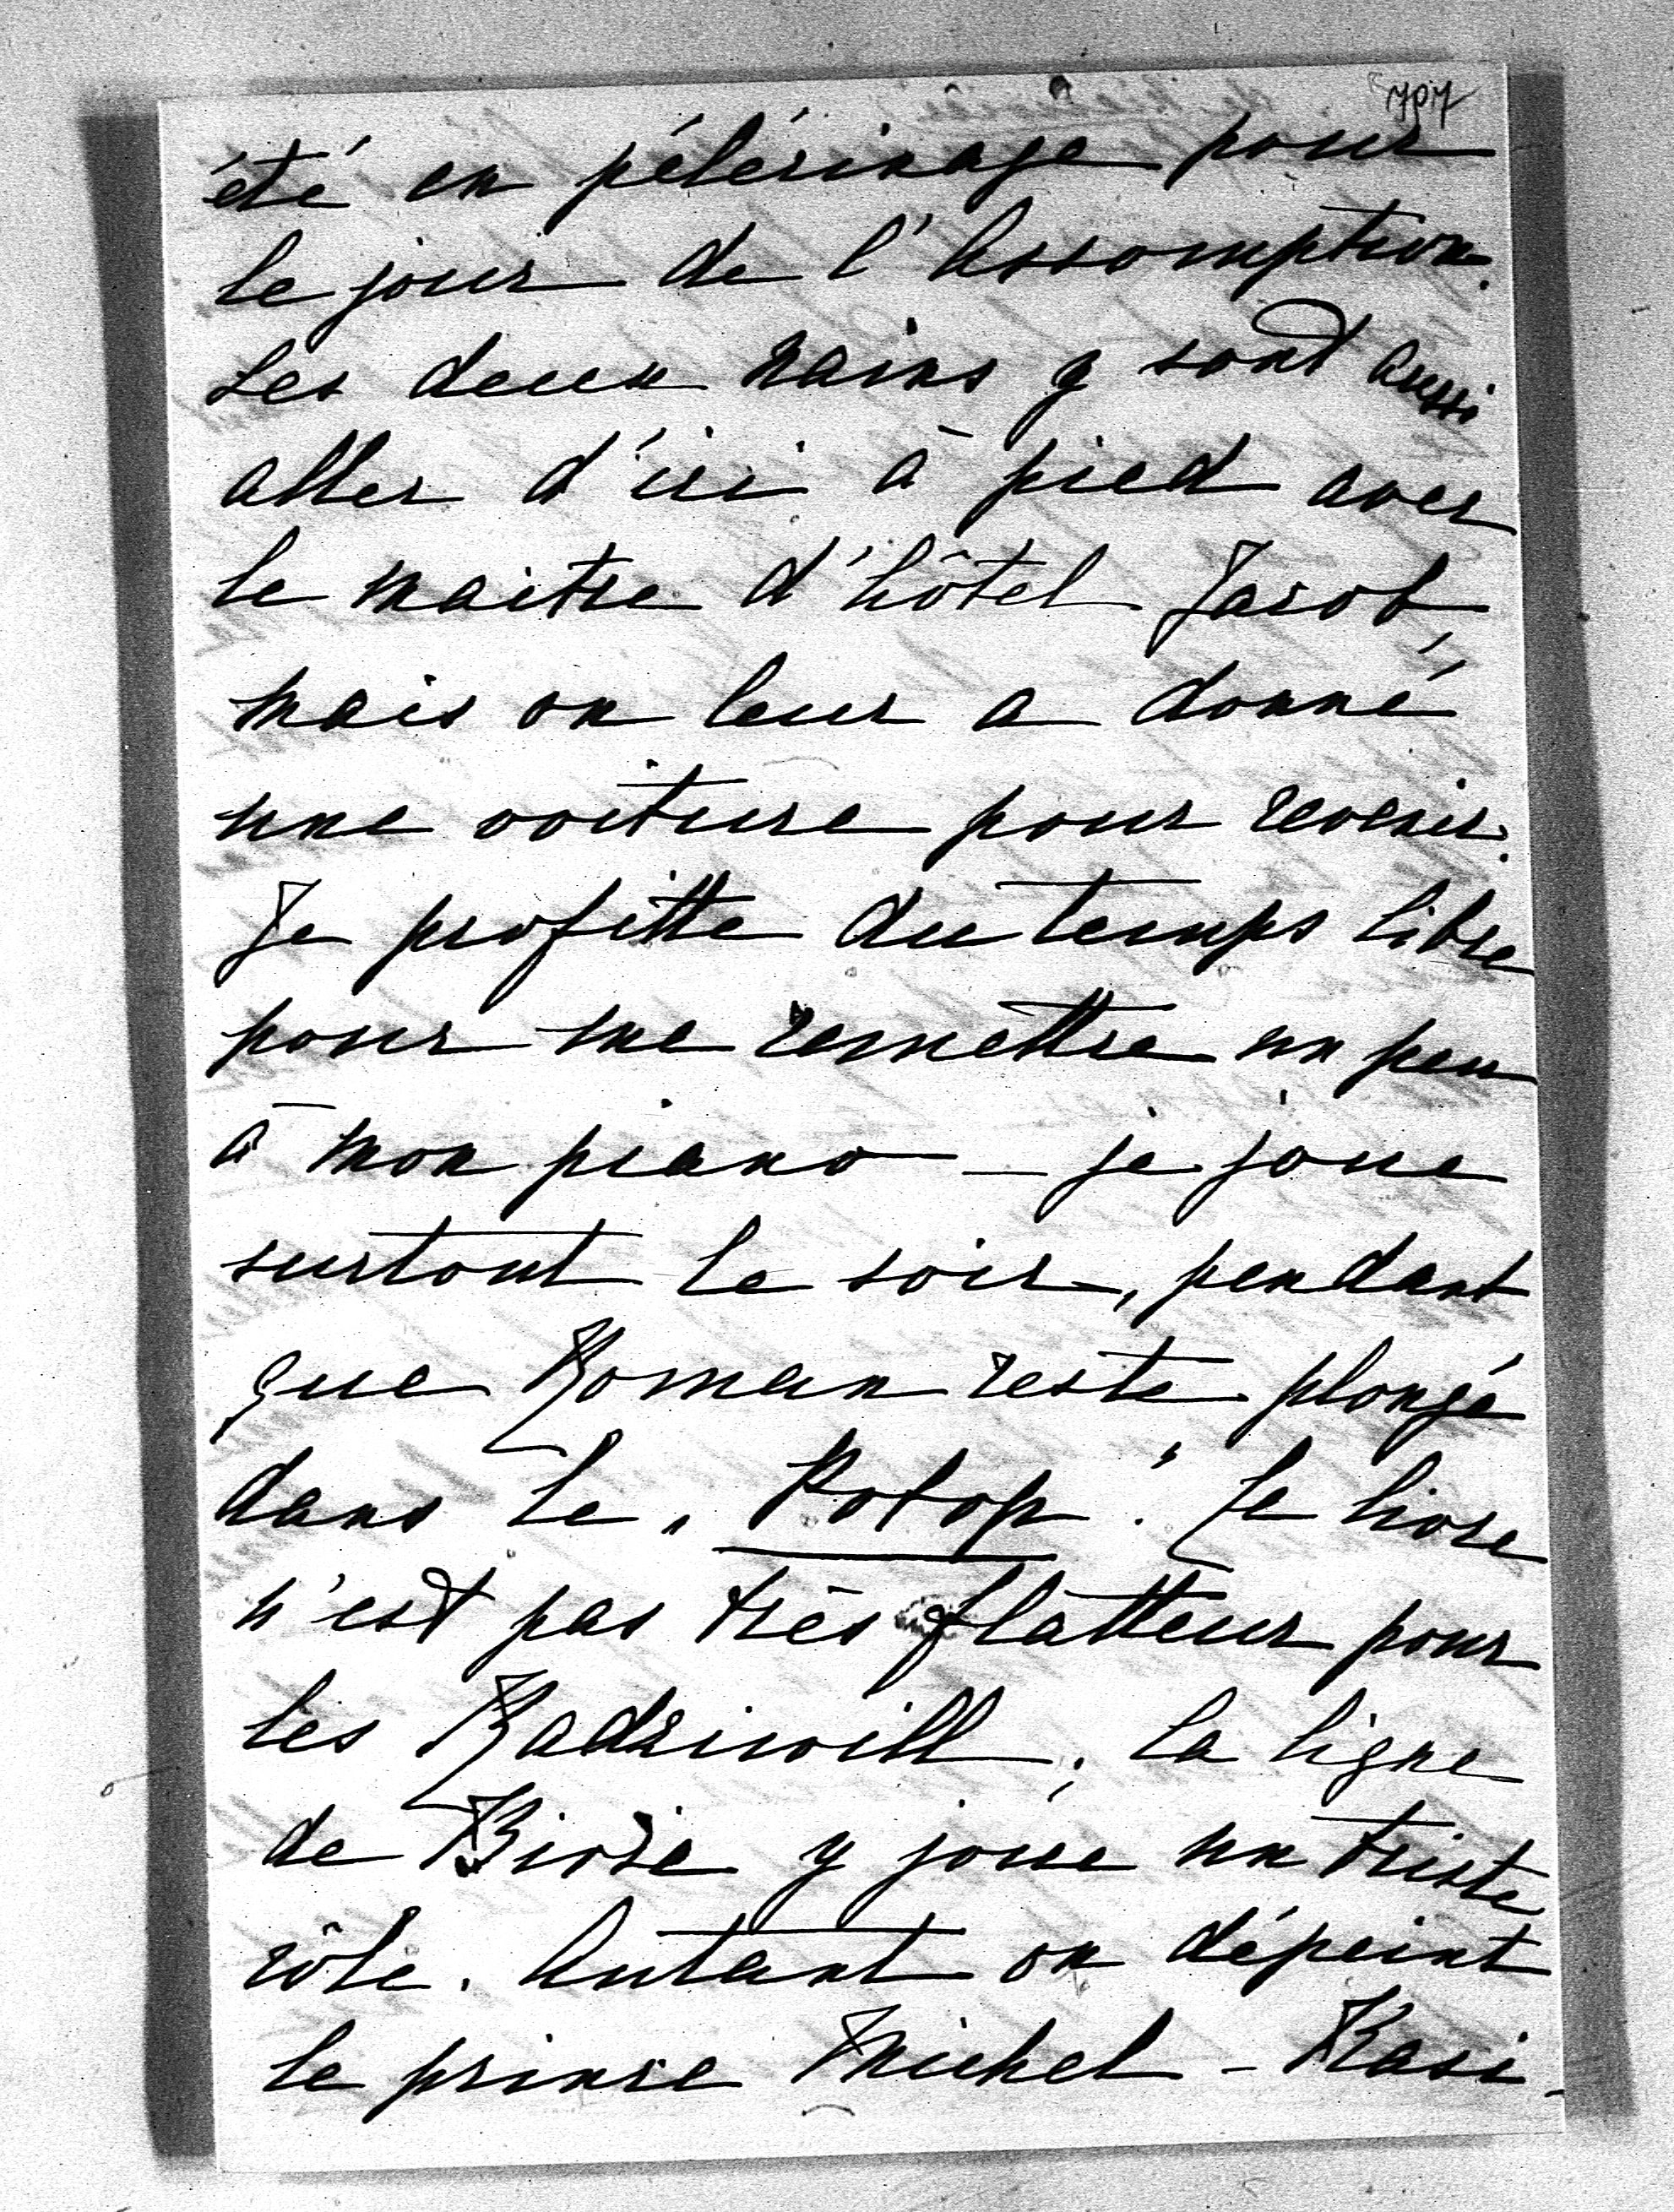 707
été en pélérinage pour
le jour de l'Assomption.
Les deux nains y sont aussi
aller d'ici à pied avec
le maitre d'hôtel Jacob,
mais on leur a donné
une voiture pour revenir.
Je profitte du temps libre
pour me remettre un peu
à mon piano — je joue
surtout le soir, pendant
que Roman reste plongé
dans le „Potop". Le livre
n'est pas très flatteur pour
les Radziwill; la ligne
de Birże y joue un triste
rôle. Autant on dépeint
le prince Michel-Kasi-